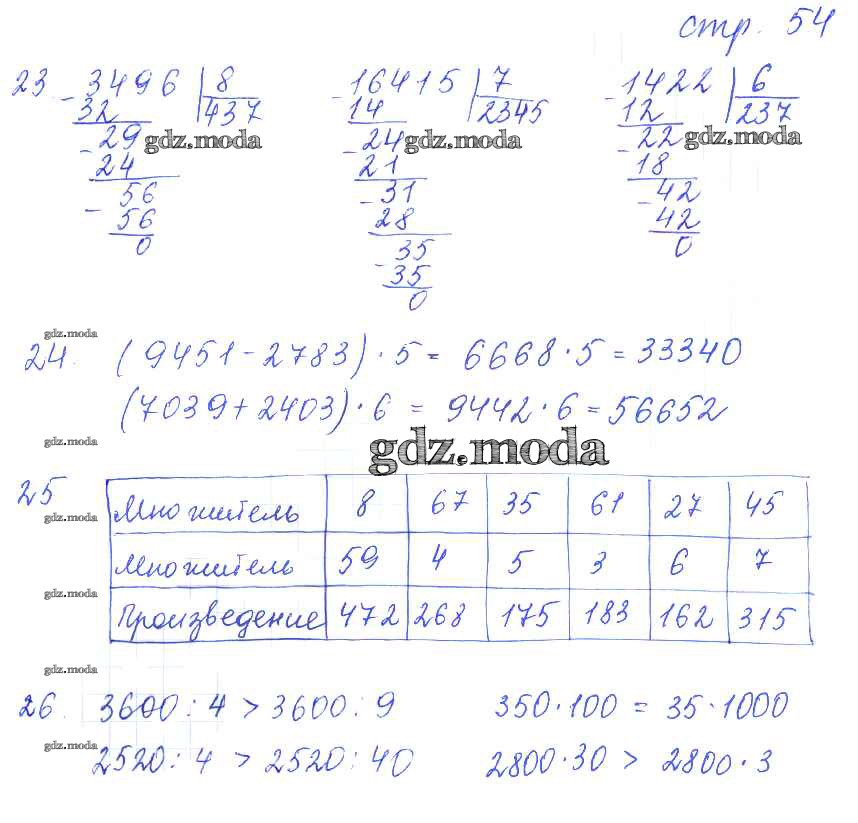 стр. 54
23. - 3496 | 8 - 16415 | 7 - 1422 | 6
32 437 14 2345 12 237
- 29 - 24 - 22
gdz.moda gdz.moda gdz.moda
24 21 18
56 - 31 - 42
- 56 28 42
0 35 0
- 35
0
gdz.moda
24. (9451 - 2783) · 5 = 6668 · 5 = 33340
(7039 + 2403) · 6 = 9442 · 6 = 56652
gdz.moda
gdz.moda
25
Множитель 8 67 35 61 27 45
gdz.moda
Множитель 59 4 5 3 6 7
gdz.moda
Произведение 472 268 175 183 162 315
gdz.moda
26. 3600 : 4 > 3600 : 9 350 · 100 = 35 · 1000
gdz.moda
2520 : 4 > 2520 : 40 2800 · 30 > 2800 · 3